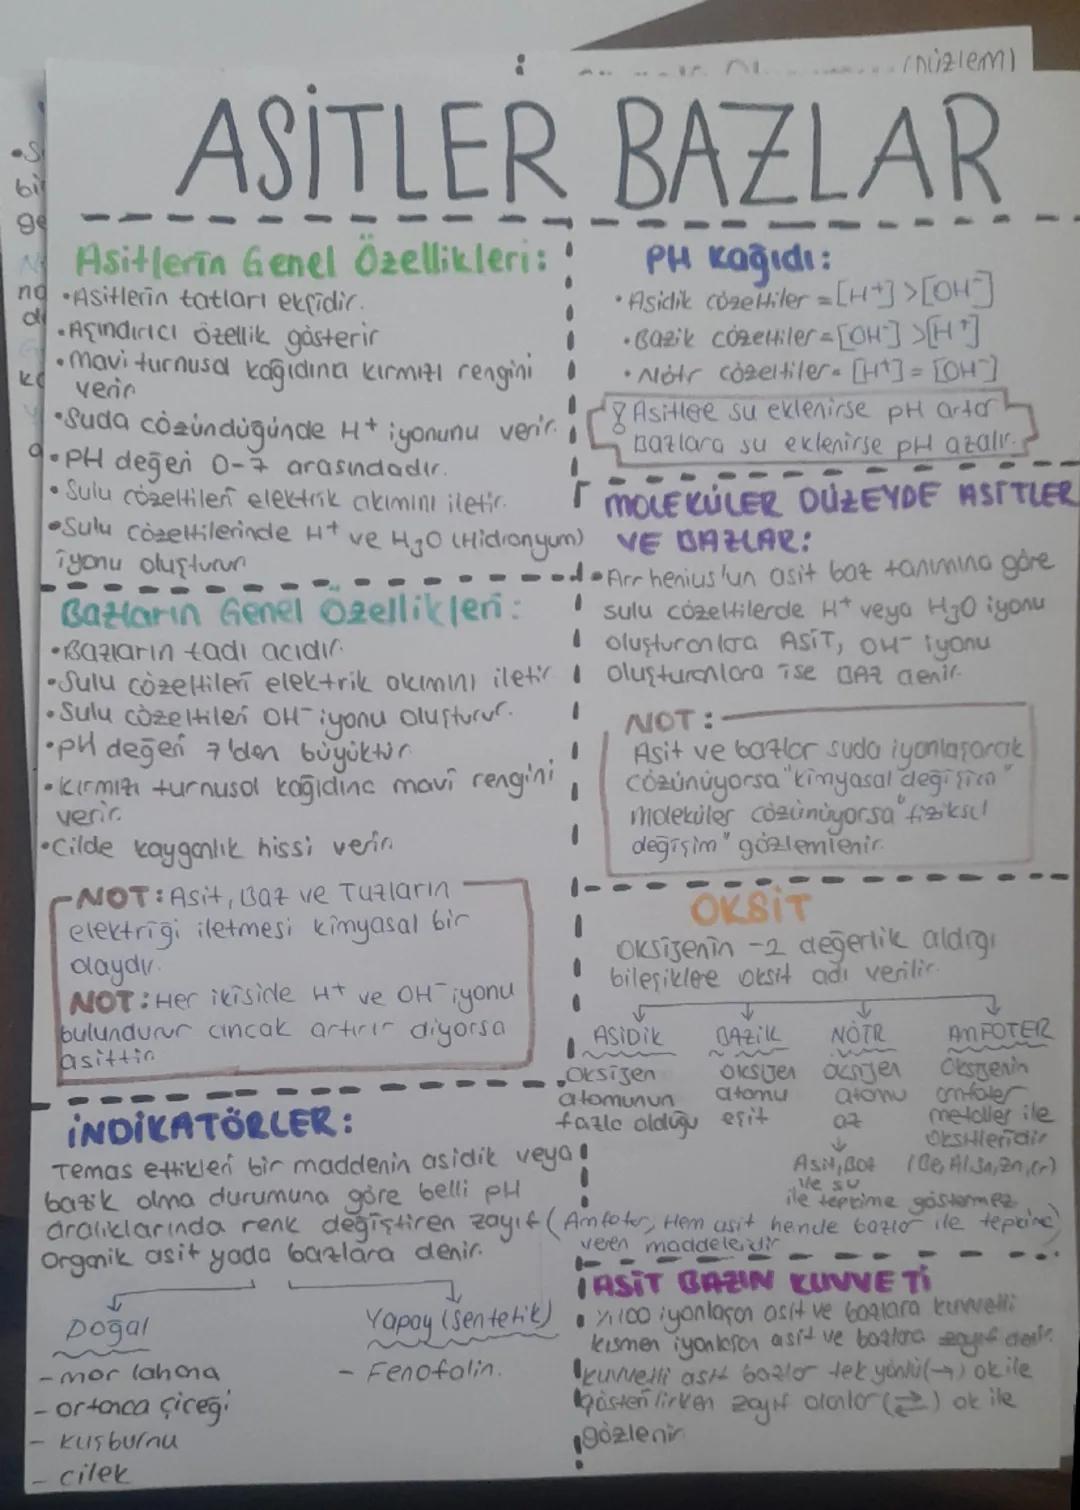 (Düzlem)
ASİTLER BAZLAR
Asitlerin Genel Özellikleri:
•Asitlerin tatları ekşidir.
•Aşındırıcı özellik gösterir
•Mavi turnusol kağıdına kırmızı rengini
verir
•Suda çözündüğünde H+ iyonunu verir.
•PH değeri 0-7 arasındadır.
•Sulu çözeltileri elektrik akımını iletir.
•Sulu çözeltilerinde H+ ve H3O (Hidronyum)
iyonu oluşturur
Bazların Genel Özellikleri:
•Bazların tadı acıdır.
•Sulu çözeltileri elektrik akımını iletir
•Sulu çözeltileri OH- iyonu oluşturur.
•pH değeri 7'den büyüktür
•Kırmızı turnusol kağıdına mavi rengini
verir.
•Cilde kayganlık hissi verir.
NOT: Asit, Baz ve Tuzların
elektriği iletmesi kimyasal bir
olaydır.
NOT: Her ikiside H+ ve OH- iyonu
bulundurur ancak artırır diyorsa
asittir
İNDİKATÖRLER:
Temas ettikleri bir maddenin asidik veya
bazik olma durumuna göre belli pH
aralıklarında renk değiştiren zayıf
Organik asit yada bazlara denir.
Doğal
- mor lahana
- ortanca çiçeği
- kuşburnu
- çilek
Yapay (Sentetik)
- Fenofalin.
PH Kağıdı:
•Asidik çözeltiler = [H+] > [OH-]
•Bazik çözeltiler = [OH-] > [H+]
•Nötr çözeltiler = [H+] = [OH-]
Asitlere su eklenirse pH artar
Bazlara su eklenirse pH azalır.
MOLEKÜLER DÜZEYDE ASİTLER
VE BAZLAR:
•Arrhenius'un asit baz tanımına göre
sulu çözeltilerde H+ veya H3O iyonu
oluşturanlara ASİT, OH- iyonu
oluşturanlara ise BAZ denir.
NOT:
Asit ve bazlar suda iyonlaşarak
çözünüyorsa "kimyasal değişim"
moleküler çözünüyorsa "fiziksel
değişim" gözlemlenir.
OKSİT
Oksijenin -2 değerlik aldığı
bileşiklere oksit adı verilir.
ASİDİK
Oksijen
atomunun
fazla olduğu
BAZİK
oksijen
atomu
eşit
NÖTR
oksijen
atomu
az
Asit, Baz
ile su
ile tepkime göstermez
AMFOTER
Oksijenin
amfoter
metaller ile
oksitleridir
(Be, Al, Sn, Zn, Cr)
(Amfoter, Hem asit hemde bazlar ile tepkime
veren maddelerdir
ASİT BAZIN KUVVETİ
•%100 iyonlaşan asit ve bazlara kuvvetli
kısmen iyonlaşan asit ve bazlara zayıf denir.
Kuvvetli asit bazlar tek yönlü (→) ok ile
gösterilirken zayıf olanlar (⇄) ok ile
gözlenir